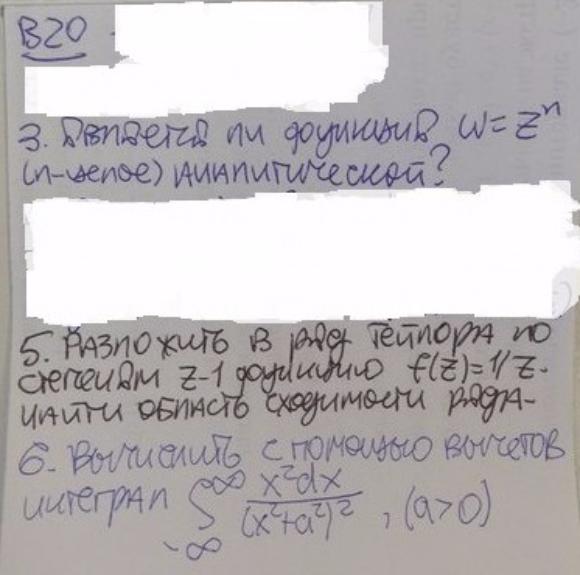 В20
3. Является ли функция w = zⁿ
(n-целое) аналитической?
5. Разложить в ряд Тейлора по
степеням z-1 функцию f(z)=1/z.
Найти область сходимости ряда.
6. Вычислить с помощью вычетов
интеграл ∫_{-∞}^{∞} x²dx/(x²+a²)², (a>0)